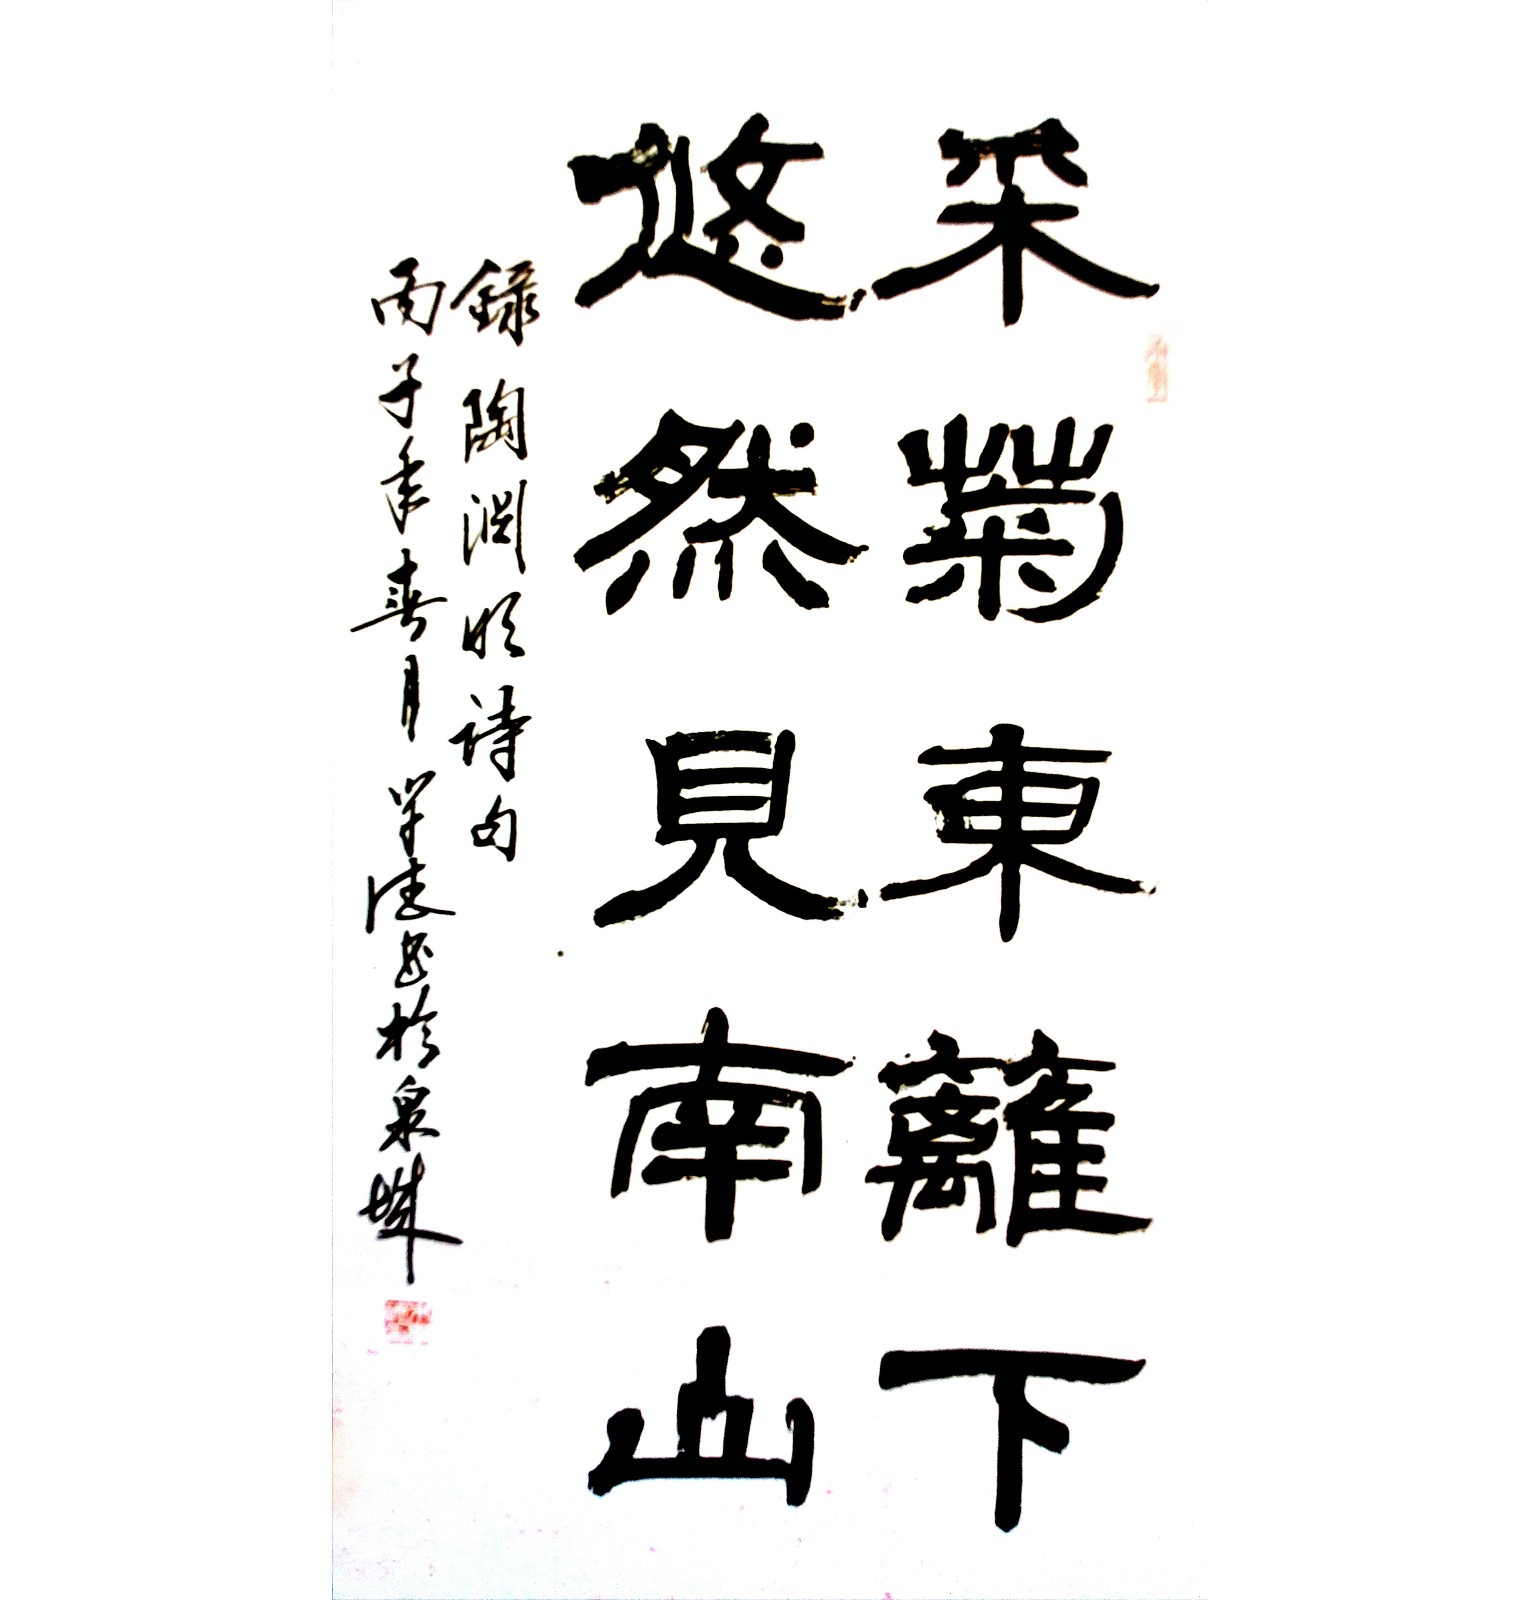 采菊東籬下
悠然見南山
錄陶淵明詩句
丙子年春月學德書於泉城